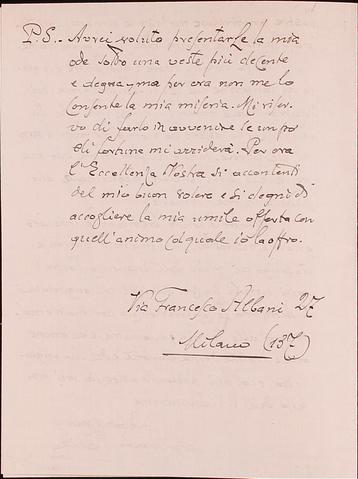 P.S. - Avrei voluto presentarLe la mia
ode sotto una veste più decente
e degna, ma per ora non me lo
consente la mia miseria. Mi riser-
vo di farlo in avvenire se un po'
di fortuna mi arriderà. Per ora
l'Eccellenza Vostra si accontenti
del mio buon volere e si degni di
accogliere la mia umile offerta con
quell'animo col quale io la offro.
Via Francesco Albani 27
Milano (137)